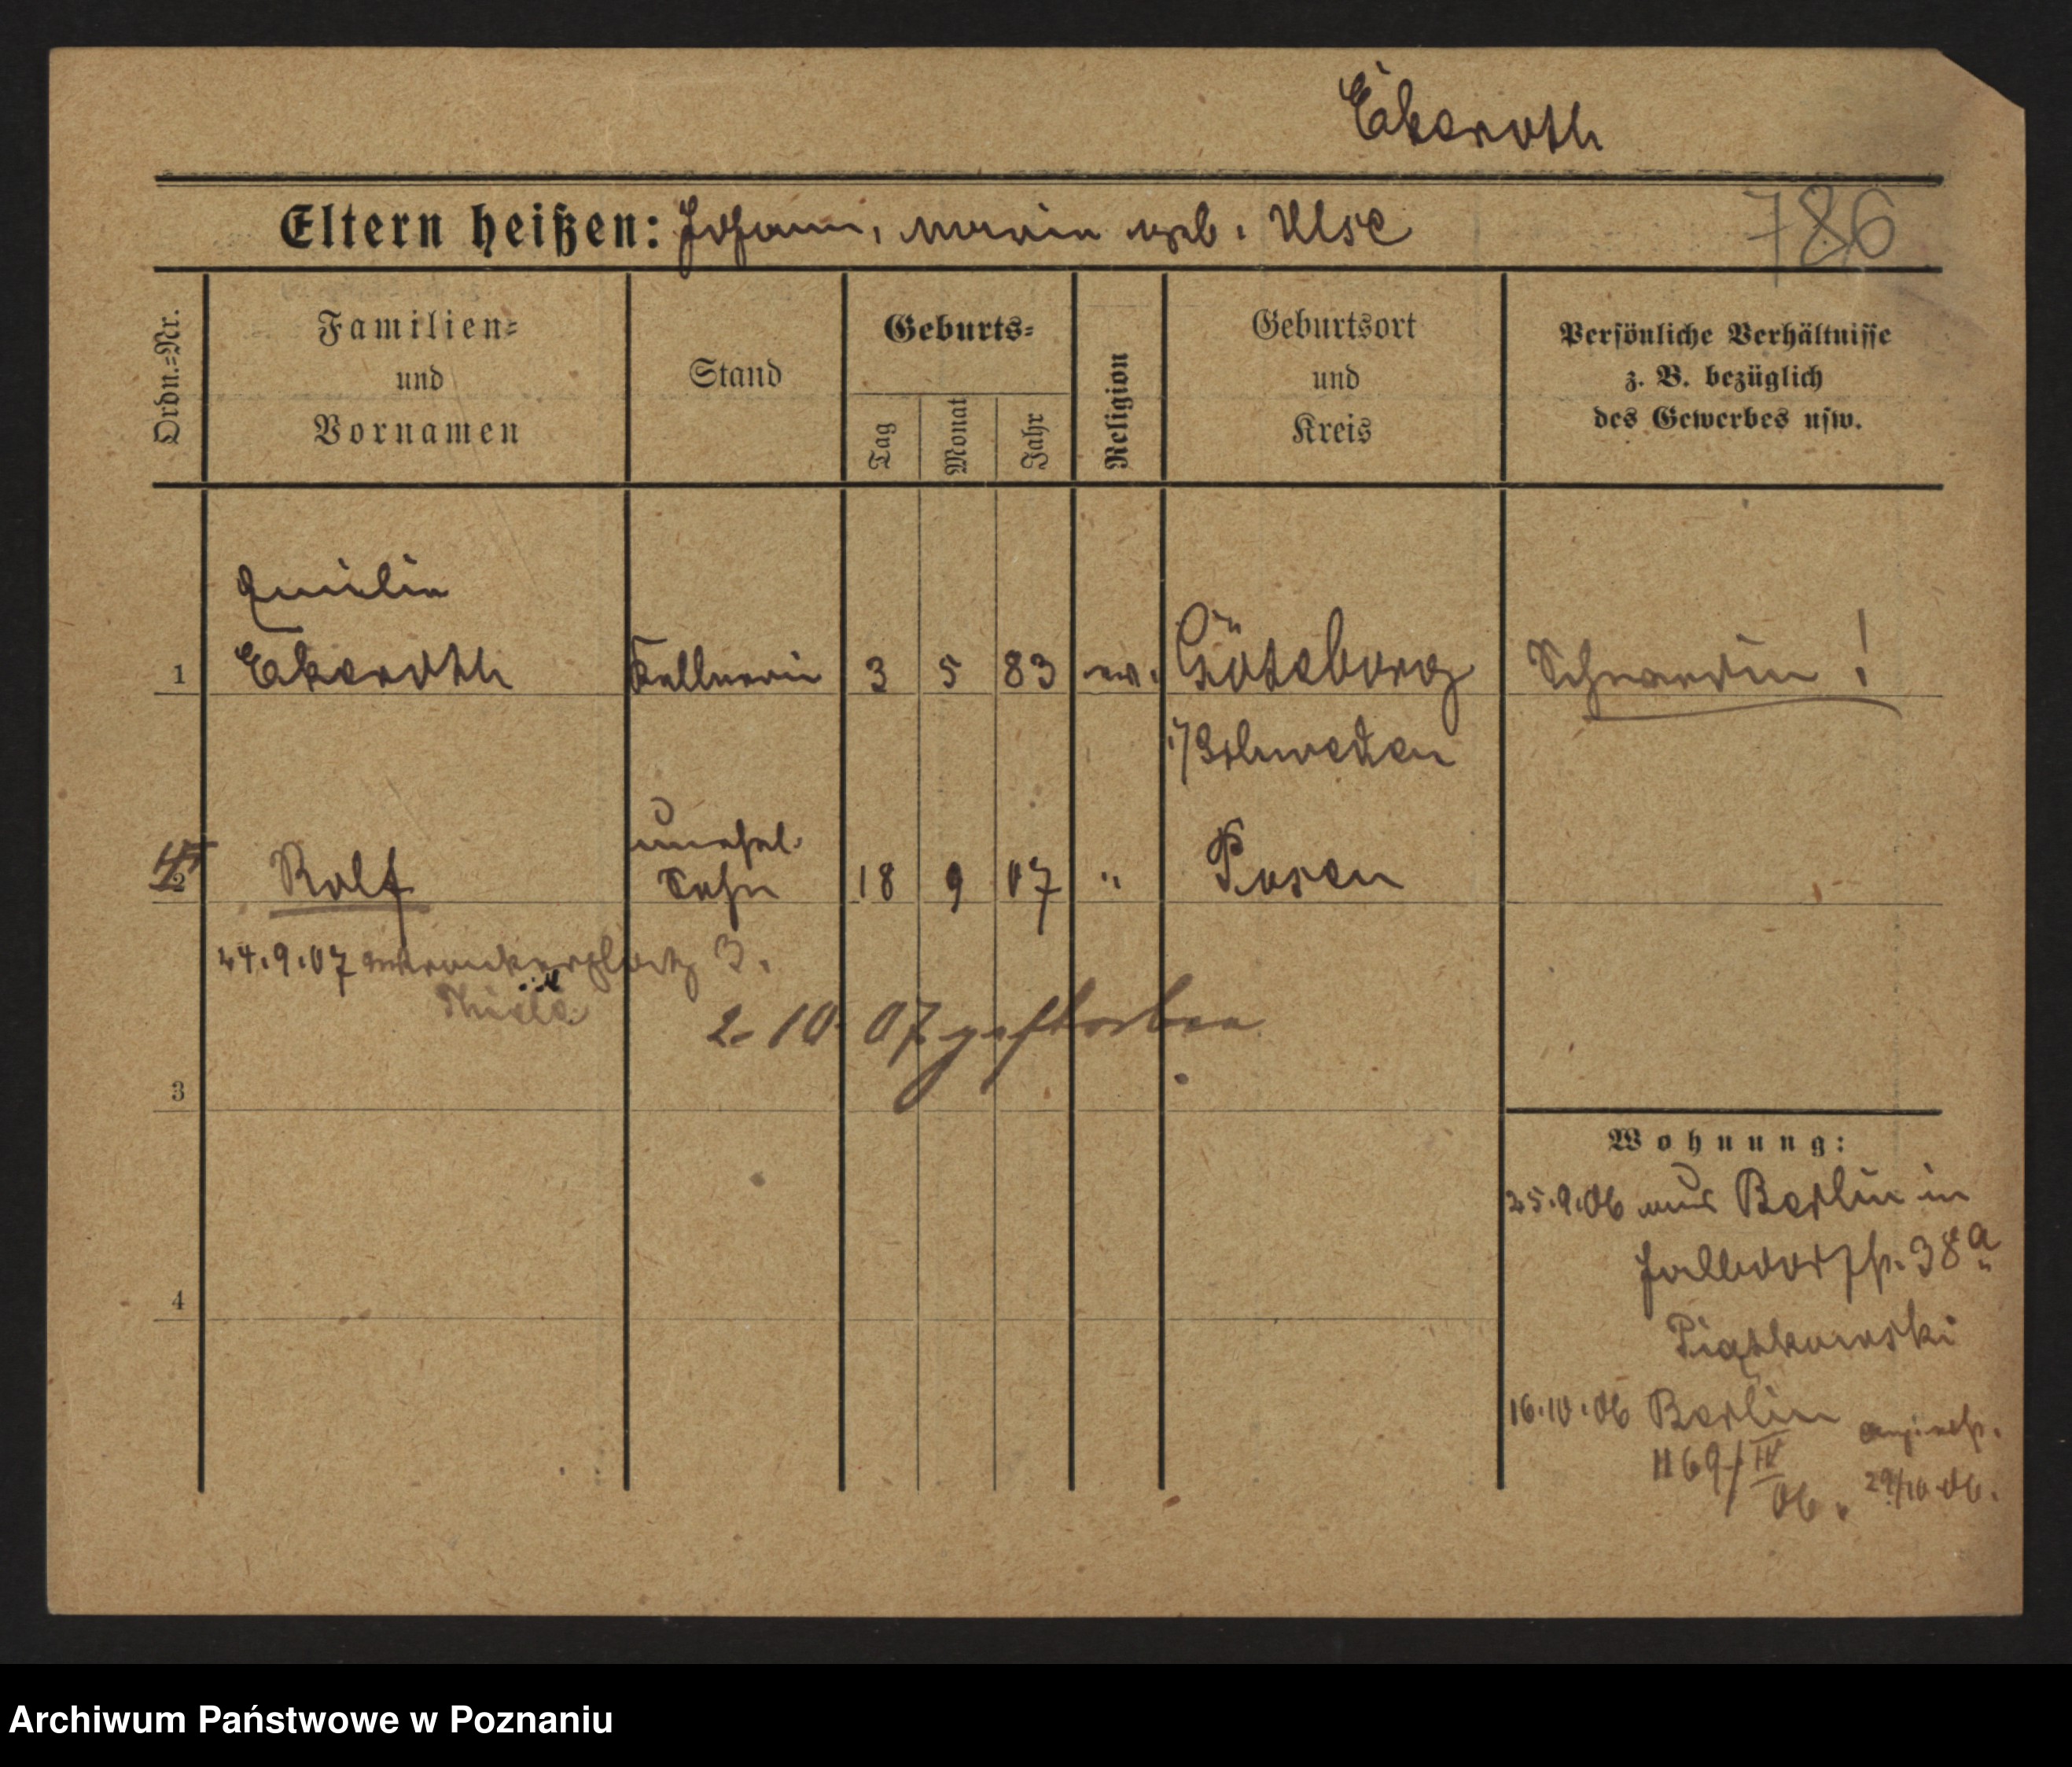 Ekeroth
Eltern heißen: Johann, Maria geb. Ulse
786
Ordn.=Nr.
Familien=
und
Vornamen
Stand
Geburts=
Tag
Monat
Jahr
Religion
Geburtsort
und
Kreis
Persönliche Verhältnisse
z. B. bezüglich
des Gewerbes usw.
1
Ekeroth
Kellnerin
3
5
83
ev.
Göteborg
Schwedin!
i/Schweden
2
Rolf
unehel.
Sohn
18
9
07
"
Posen
24.9.07
3.
Thiele
2. 10 07 gestorben
3
4
Wohnung:
25.9.06 aus Berlin in
38a
Piątkowski
16.10.06 Berlin
1169/IV
06.
29/10.06.
Archiwum Państwowe w Poznaniu